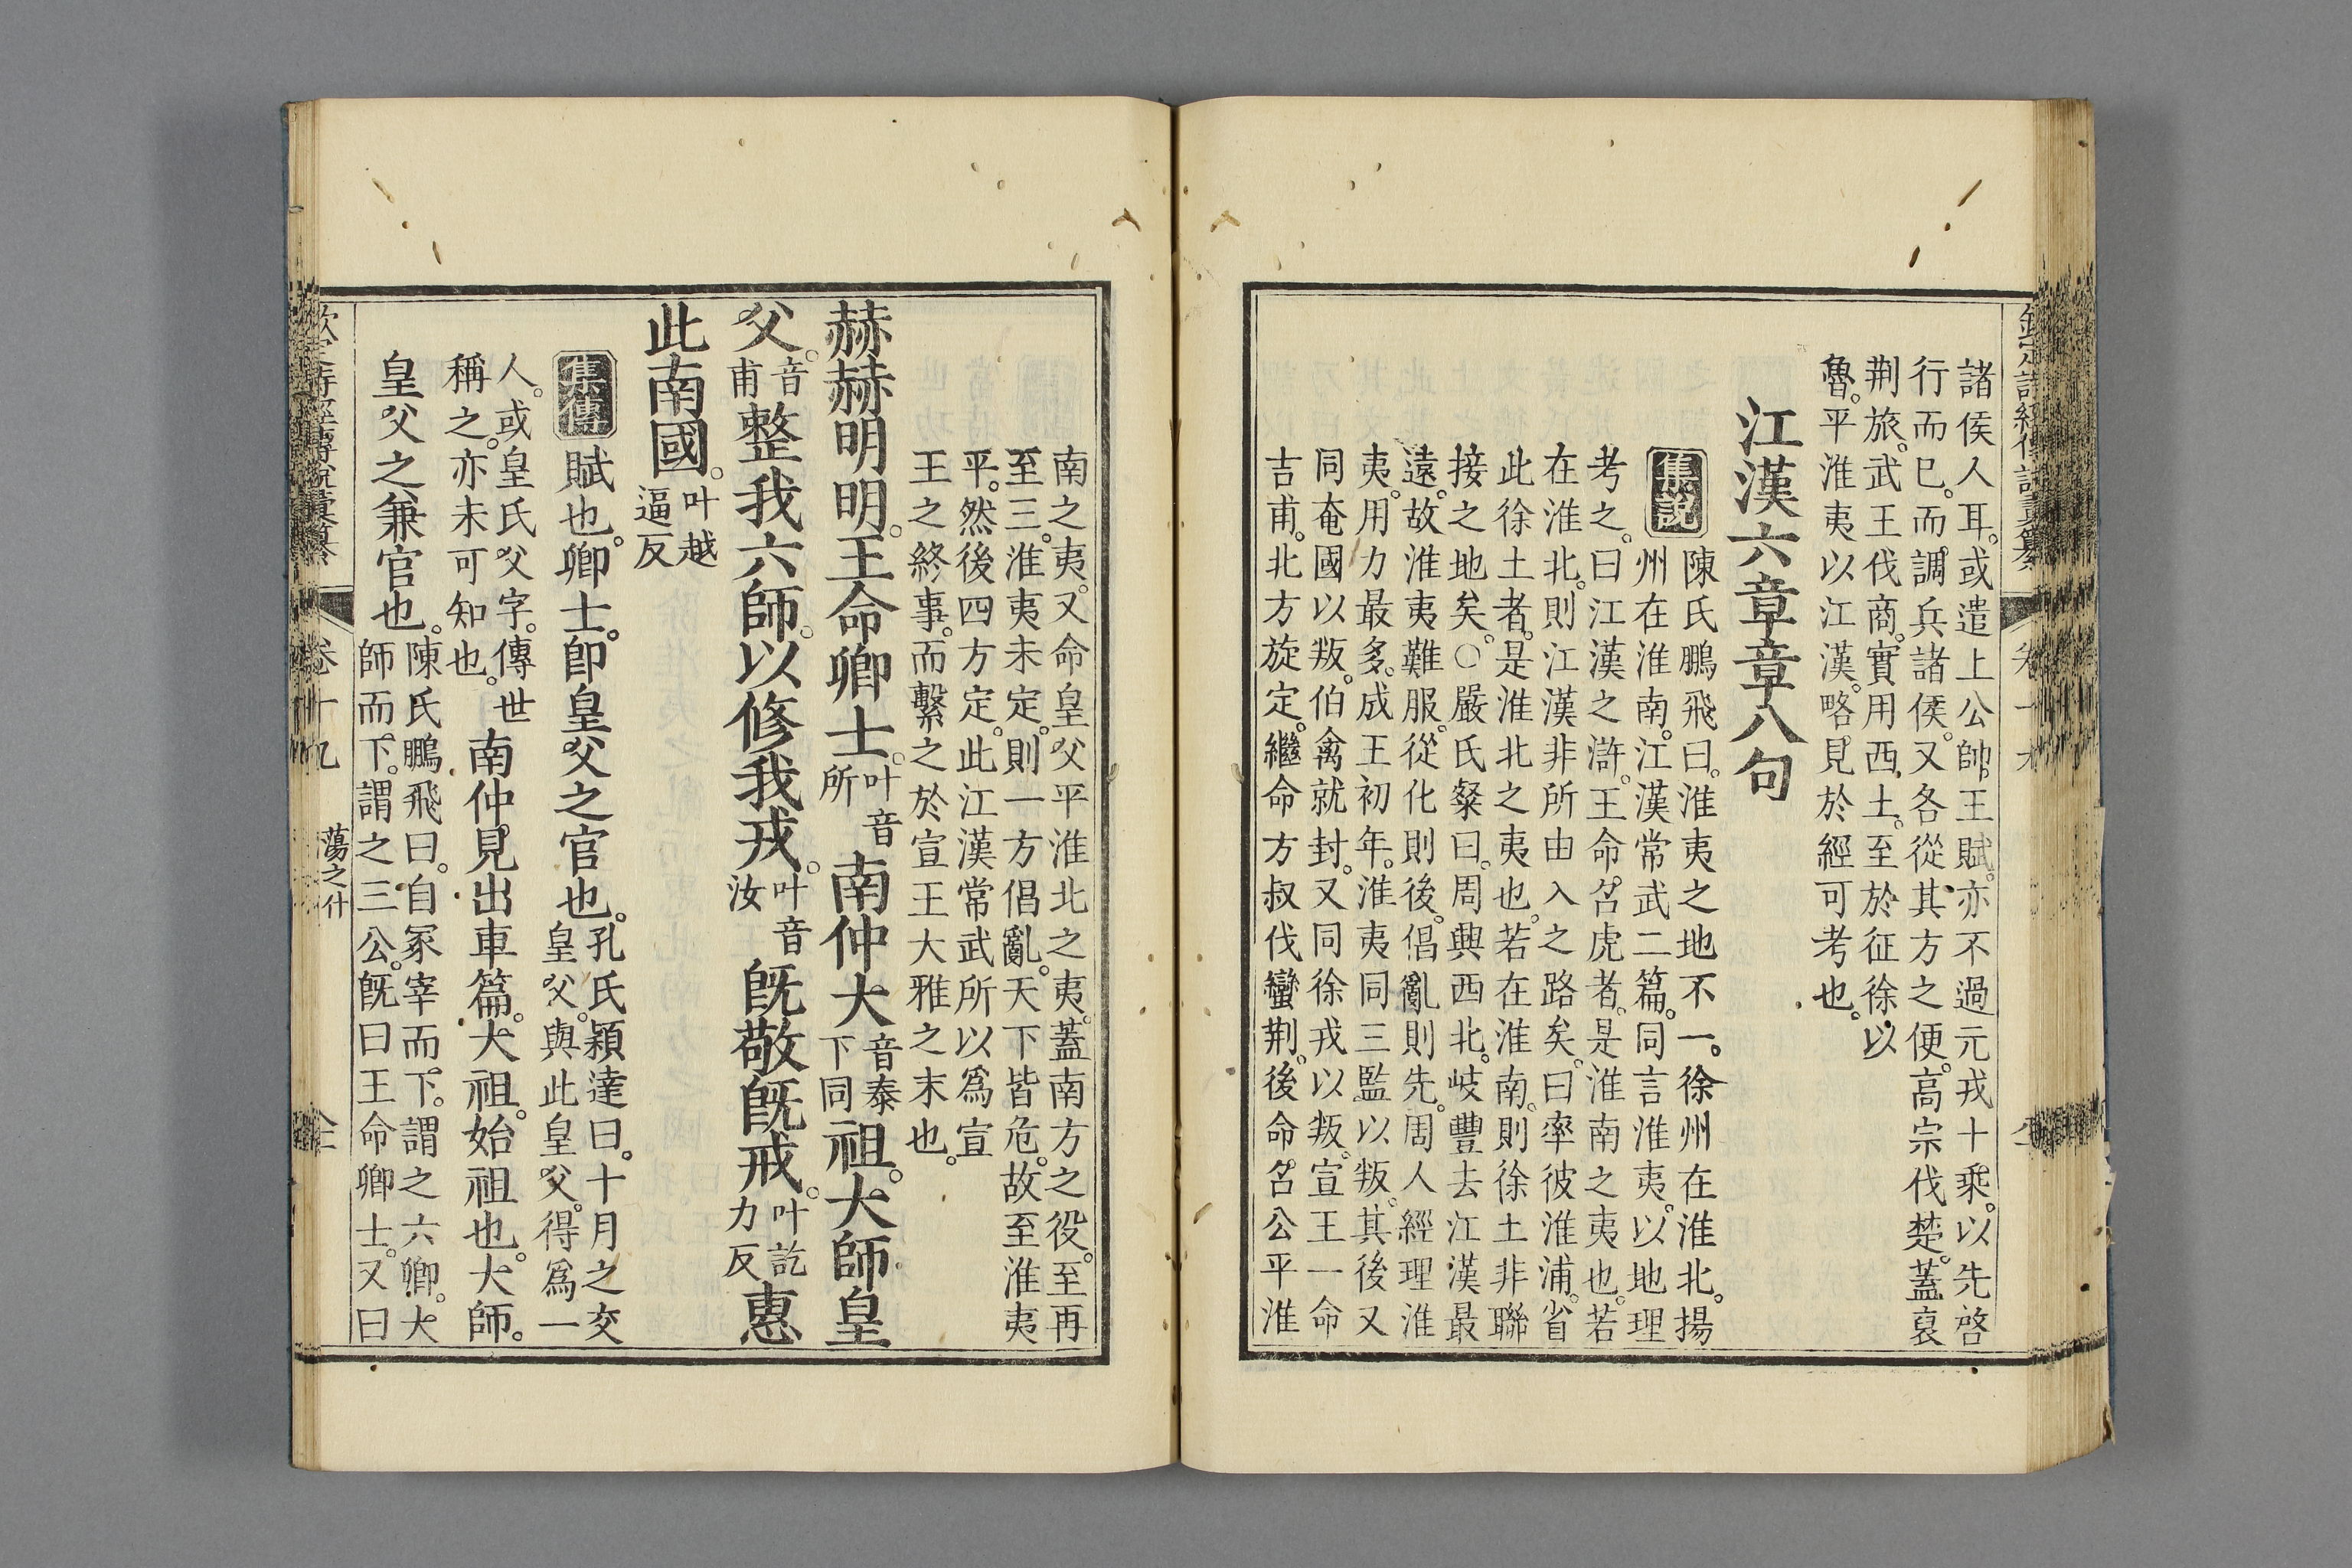 諸侯人耳。或遣上公帥。王賦。亦不過元戎十乘。以先啓
行而巳。而調兵諸侯。又各從其方之便。高宗伐楚。蓋裒
荆旅。武王伐商。實用西土。至於征徐。以
魯。平淮夷以江漢。略見於經可考也。
江漢六章章八句
集說
陳氏鵬飛曰。淮夷之地不一。徐州在淮北。揚
州在淮南。江漢常武二篇。同言淮夷。以地理
考之。曰江漢之滸。王命召虎者。是淮南之夷也。若
在淮北。則江漢非所由入之路矣。曰率彼淮浦。省
此徐土者。是淮北之夷也。若在淮南。則徐土非聯
接之地矣。○嚴氏粲曰。周興西北。岐豐去江漢最
遠。故淮夷難服。從化則後。倡亂則先。周人經理淮
夷。用力最多。成王初年。淮夷同三監以叛。其後又
同奄國以叛。伯禽就封。又同徐戎以叛。宣王一命
吉甫。北方旋定。繼命方叔伐蠻荆。後命召公平淮
南之夷。又命皇父平淮北之夷。蓋南方之役。至再
至三。淮夷未定。則一方倡亂。天下皆危。故至淮夷
平。然後四方定。此江漢常武所以爲宣
王之終事。而繫之於宣王大雅之末也。
赫赫明明。王命卿士。叶音所南仲大音泰下同祖。大師皇
父。音甫整我六師。以修我戎。叶音汝旣敬旣戒。叶訖力反惠
此南國。叶越逼反
集傳
賦也。卿士。卽皇父之官也。孔氏穎達曰。十月之交皇父。與此皇父。得爲一
人。或皇氏父字。傳世稱之。亦未可知也。南仲。見出車篇。大祖。始祖也。大師。
皇父之兼官也。陳氏鵬飛曰。自冢宰而下。謂之六卿。大師而下。謂之三公。旣曰王命卿士。又曰
欽定詩經傳說彙纂
卷十九
蕩之什